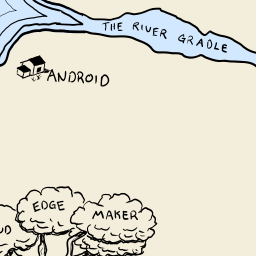 THE RIVER GRADLE
ANDROID
EDGE
MAKER
UD